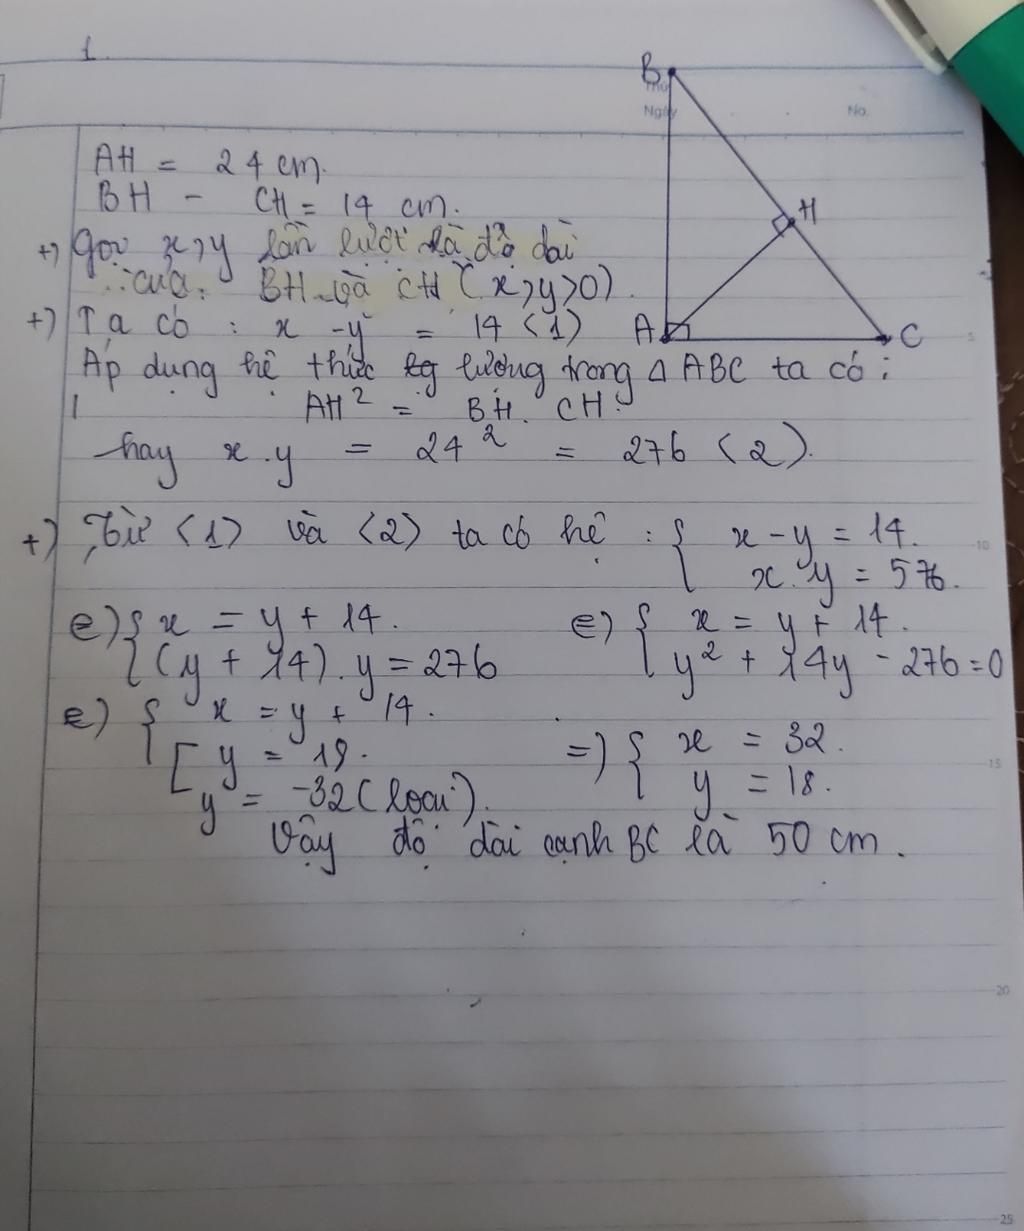 1.
B
Thứ
Ngày No.
AH = 24 cm.
BH - CH = 14 cm.
H
+) Gọi x, y lần lượt là độ dài
của BH và CH (x, y > 0)
+) Ta có : x - y = 14 (1)
A C
5
Áp dụng hệ thức lượng trong Δ ABC ta có :
AH² = BH . CH
hay x . y = 24² = 276 (2).
+) Từ (1) và (2) ta có hệ : { x - y = 14.
x . y = 576.
10
e) { x = y + 14. e) { x = y + 14.
(y + 14) . y = 276 y² + 14y - 276 = 0
e) { x = y + 14.
[ y = 19. =) { x = 32.
15
y = -32 (loại). y = 18.
Vậy độ dài cạnh BC là 50 cm.
20
25